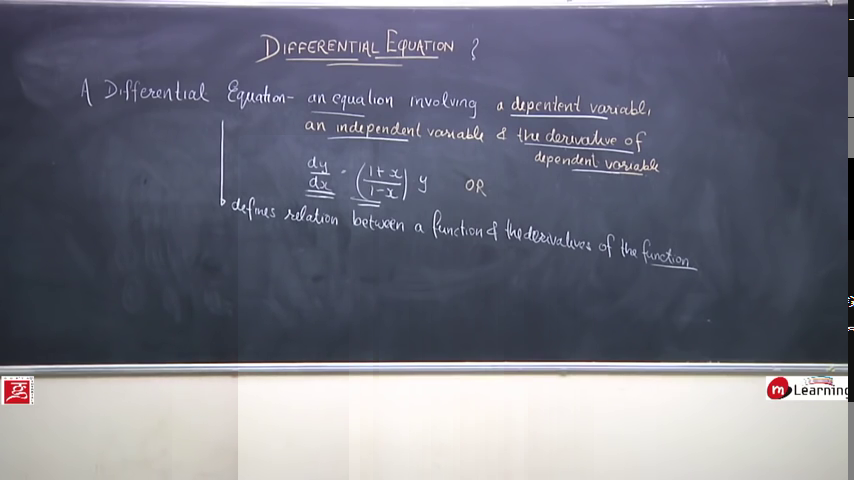 DIFFERENTIAL EQUATION ?
A Differential Equation- an equation involving a depentent variable,
an independent variable & the derivative of
dependent variable
dy/dx = (1+x/1-x) y OR
defines relation between a function & the derivatives of the function
m Learning